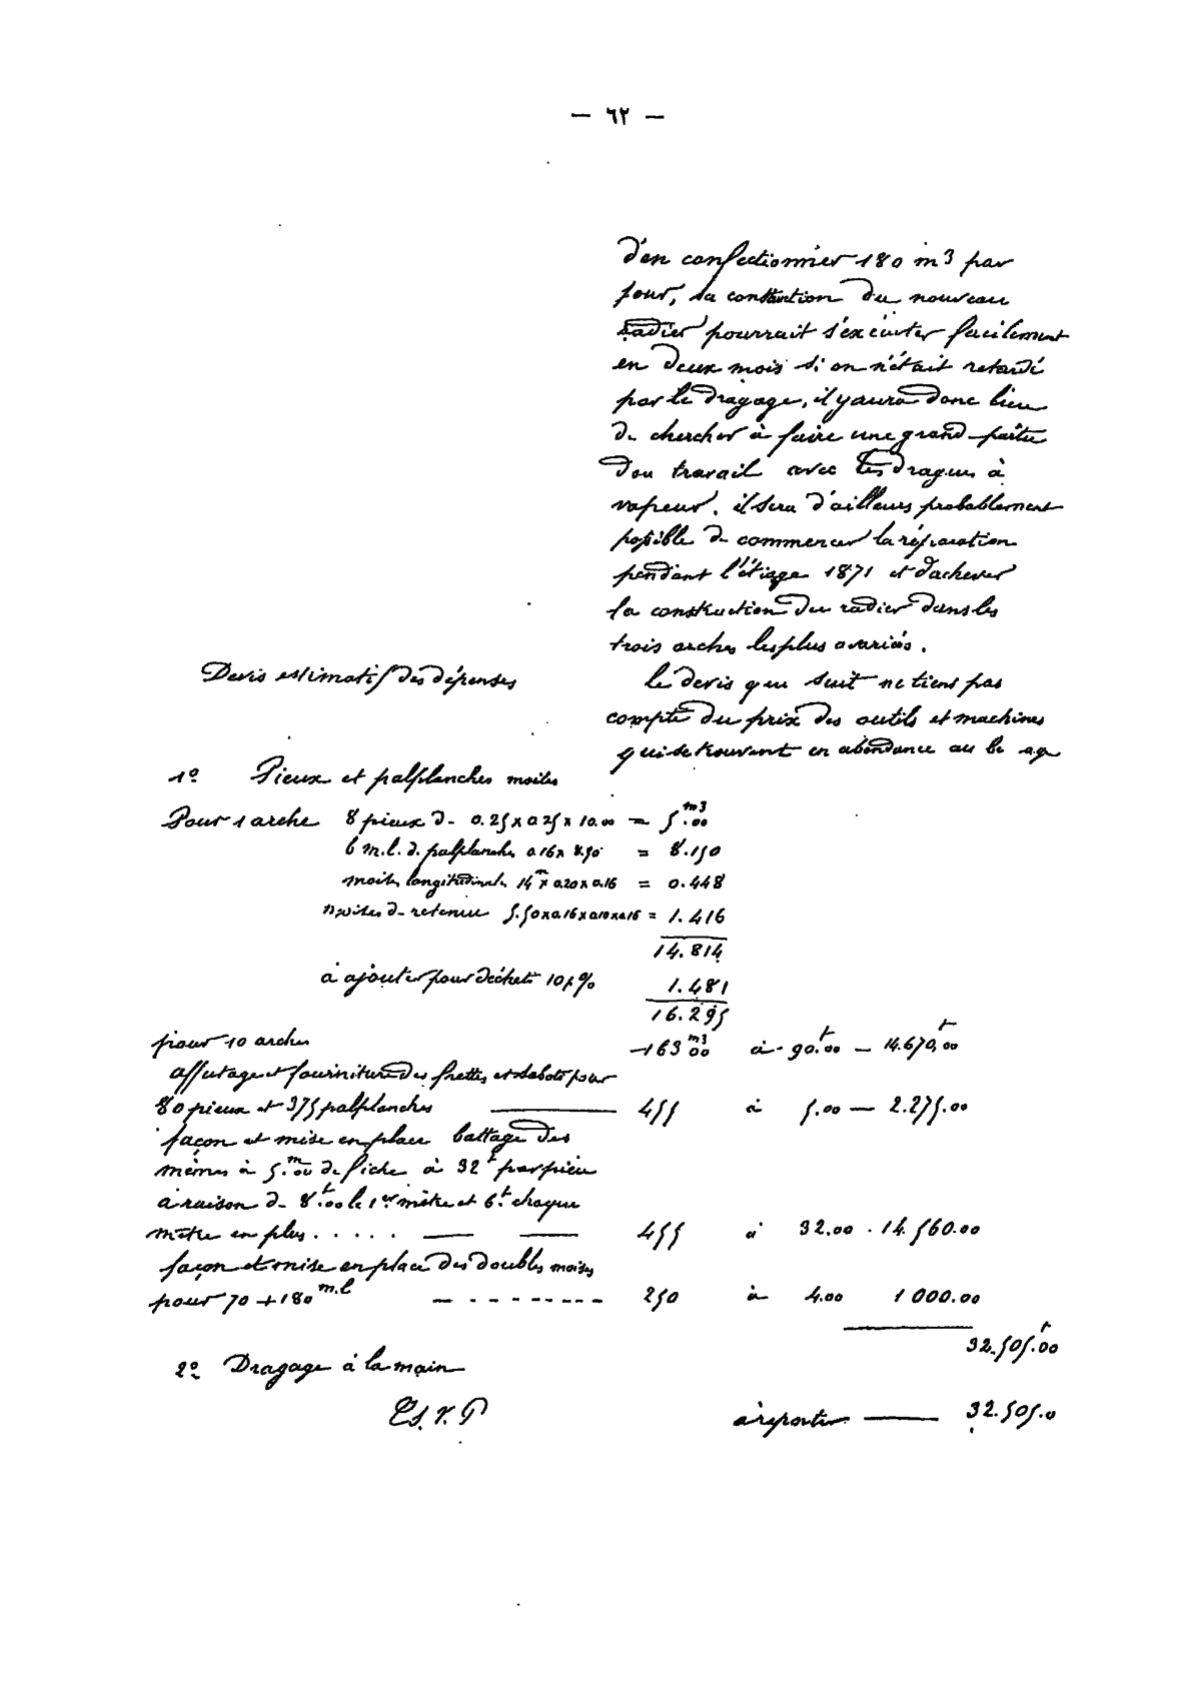 — ٦٢ —
d'en confectionner 180 m3 par
jour, la constuction du nouveau
radier pourrait s'exécuter facilement
en deux mois si on n'était retardé
par le dragage, il y aura donc lieu
de chercher à faire une grand partie
dou travail avec les dragues à
vapeur. il sera d'ailleurs probablement
possible de commencer la réparation
pendant l'étiage 1871 et d'achever
la construction du radier dans les
trois arches les plus avariés.
Devis estimatif des dépenses
le devis que suit ne tiens pas
compte du prix des outils et machines
qui se trouvent en abondance au
1º Pieux et palplanches moises
Pour 1 arche 8 pieux de 0.25 x 0.25 x 10.00 = 5.m3 00
6 m.l. d. palplanches 0.16 x 8.50 = 8.150
moises longitudinales 14m x 0.20 x 0.16 = 0.448
moises de retenue 5.50 x 0.16 x 0.10 x 0.16 = 1.416
14.814
à ajouter pour déchet 10 %
1.481
16.295
pour 10 arches — 163 m3 00 à 90.f00 — 14.670,f00
affutage et fourniture des frettes et sabots pour
80 pieux et 375 palplanches — 455 à 5.00 — 2.275.00
façon et mise en place battage des
mêmes à 5.m00 de fiche à 32f par pieu
à raison de 8.f00 le 1er mètre et 6f. chaque
mètre en plus . . . . . — — 455 à 32.00 . 14.560.00
façon et mise en place des doubles moises
pour 70 + 180 m.l — - - - - - - - - 250 à 4.00 1 000.00
32.505.f00
2º Dragage à la main
T.S.V.P
à reporter — 32.505.0